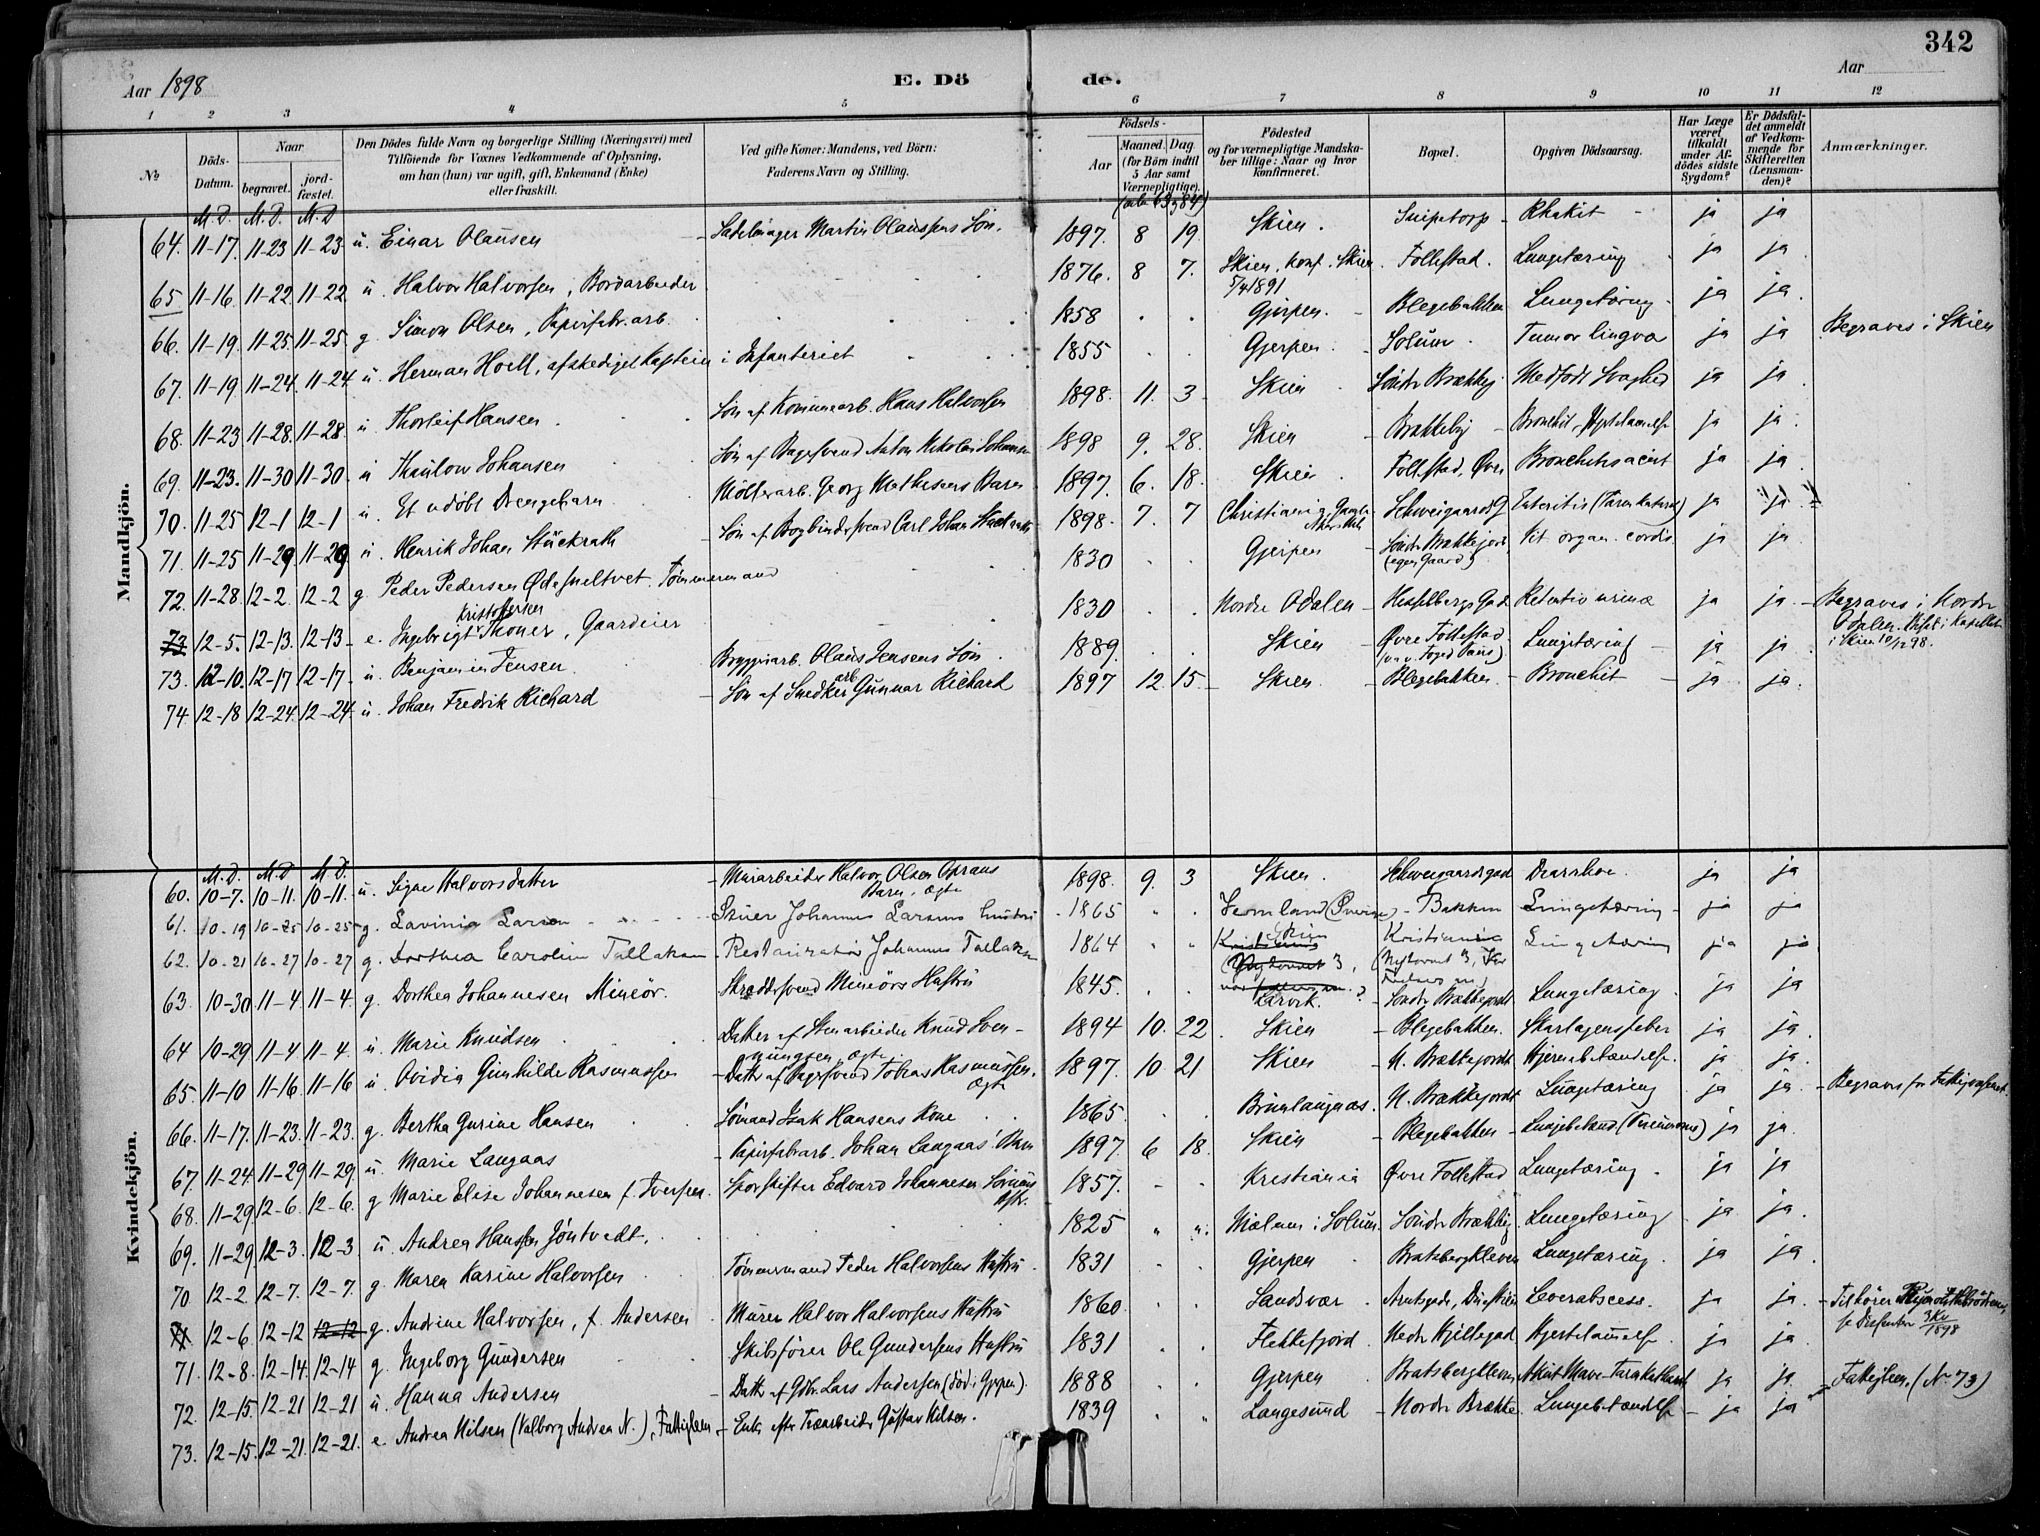 342
Aar 1898
E. Dö de.
Aar
1 2 3 4 5 6 7 8 9 10 11 12
№
Döds-Datum.
Naar
begravet.
jord-fæstet.
Den Dödes fulde Navn og borgerlige Stilling (Næringsvei) med
Tilföiende for Voxnes Vedkommende af Oplysning,
om han (hun) var ugift, gift, Enkemand (Enke)
eller fraskilt.
Ved gifte Koner: Mandens, ved Börn:
Faderens Navn og Stilling.
Födsels-
Aar
Maaned. Dag
(for Börn indtil
5 Aar samt
Værnepligtige).
Födested
og for værnepligtige Mandska-
ber tillige: Naar og hvor
konfirmeret.
Bopæl.
Opgiven Dödsaarsag.
Har Læge
været
tilkaldt
under Af-
dödes sidste
Sygdom?
Er Dödsfal-
det anmeldt
af Vedkom-
mende for
Skifteretten
(Lensman-
den)?
Anmærkninger.
Mandkjön.
M. D. M. D. M. D
64. 11-17. 11-23 11-23 u. Einar Olausen – Sadelmager Martin Olaussens Søn. 1897. 8 19. Skien. Snipetorp – Rhakit – ja ja
65 11-16. 11-22 11-22 u. Halvor Halvorsen, Bordarbeider 1876. 8 7. Skien, konf. Skien 5/4 1891 Follestad. Lungetæring ja ja
66. 11-19. 11-25. 11-25. g. Simon Olsen, Papirfabr.arb. 1858 Gjerpen. Blegebakken Lungetæring – ja ja.
67. 11-19 11-24. 11-24 u. Herman Hoell, afskediget Kaptein i Infanteriet 1855 Gjerpen. Solum. Tumor lingva ja ja Begraves i Skien
68. 11-23 11-28. 11-28. u. Thorleif Hansen Søn af Kommunearb. Hans Halvorsen 1898. 11. 3 Skien Søndr Brækkej Medfødt Svaghed ja ja
69. 11-23. 11-30 11-30 u Thaulow Johansen Søn af Bagersvend Anton Nikolai Johansen 1898 9. 28. Skien – Brækkebj – Bronchit, ja ja.
70. 11-25 12-1 12-1 u. Et udøbt Drengebarn Møllerarb. Georg Mathisens Barn 1897. 6. 18. Skien. Follestad, Øvre Bronchitis acut ja ja
71. 11-25 11-29 11-29 u. Henrik Johan Stückrath – Søn af Bogbindersvend Carl Johan Stückrath 1898. 7. 7 Christiania, Schweigaards G Enteritis (Tarmkatarrh) ja ja
72. 11-28. 12-2. 12-2 g. Peder Pedersen Ødesneltvet. Tømmermand 1830 Gjerpen Søndr Brækkejord (egen Gaard) Vit. organ. cordis ja ja
73 12-5. 12-13. 12-13 – e. Ingebrigt Kristoffersen Thoner, Gaardeier 1830 Nordre Odalen – Hesselbergs Gad Retentio urinæ ja ja – Begraves i Nordre Odalen. i Kapellet i Skien 10/12 98.
73. 12-10. 12-17 12-17 – u. Benjamin Jensen Bryggeriarb. Olaus Jensens Søn. 1889. Skien – Øvre Follestad Lungetæring – ja ja
74 12-18 12-24. 12-24 u. Johan Fredrik Richard – Søn af Snedkerarb. Gunnar Richard 1897 12. 15. – Skien – Blegebakken – Bronchit – ja ja.
Kvindekjön.
M. D. M. D M. D.
60. 10-7. 10-11. 10-11. u. Signe Halvorsdatter – Murarbeider Halvor Olsen Opsans Barn, ægte 1898. 9. 3 Skien. Schweigaardsgad Diarrhoe. ja ja
61. 10-19 10-25 10-25 g. Lavinia Larsen Stuer Johannes Larsens Hustru 1865 Vermland (Sverige) – Bakken Lungetæring – ja ja
62. 10-21 10-27 10-27 g. Dorthea Caroline Tallaksen – Restauratør Johannes Tallaksen 1864 Skien Kristiania (Nytorvet 3, Lungetæring ja ja
63. 10-30 11-4 11-4 g. Dorthea Johannesen Mineör. Skræddersvend Mineörs Hustru 1845. Larvik. ? – Søndr Brækkejordt Lungetæring. ja ja
64 10-29 11-4 11-4. u. Marie Knudsen Datter af Stenarbeider Knud Sven-nungsen, ægte 1894 10. 22 Skien – Blegebakken. Skarlagensfeber ja ja.
65. 11-10 11-16 11-16 u Ovidia Gunhilde Rasmussen – Datter af Bagersvend Tobias Rasmussen. ægte 1897. 10 21 Skien – N. Brækkejordt Hjernebetændelse. ja ja.
66. 11-17. 11-23. 11-23. g. Bertha Gurine Hansen Sømand Isak Hansens Kone 1865. Brunlaugnæs. N. Brækkejordt Lungetæring ja ja. – Begraves for Fattigvæsenet.
67. 11-24. 11-29 11-29. u. Marie Langaas – Papirfabr.arb. Johan Langaas' Barn 1897. 6 18. Skien – Blegebakken – Lungebetænd (Pneumonia) ja ja.
68. 11-29. 12-6. 12-6. g Marie Elise Johannesen f. Iversen. Sporskifter Edvard Johannesen Hstr. 1857. Kristiania Øvre Follestad Lungetæring. ja ja
69. 11-29 12-3. 12-3 u. Andrea Hansen Jöntvedt. 1825 " ". Mælum i Solum. Søndr Brækkej Lungetæring ja ja.
70. 12-2. 12-7. 12-7. g. Maren Karine Halvorsen Tømmermand Peder Halvorsens Hustru 1831 Gjerpen Bratsbergkleven Lungetæring. ja ja
71 12-6. 12-12 12-12 g. Andrine Halvorsen, f. Andersen Murer Halvor Halvorsens Hustru 1860. Sandsvær. Leverabscess. ja ja. – Tilhører
71. 12-8. 12-14. 12-14 g. Ingeborg Gundersen Skibsfører Ole Gundersens Hustru 1831 Flekkefjord. Nedr Hjellegad Hjertelammelse. ja ja
72. 12-15. 12-21 12-21 u. Hanna Andersen – Datter af Gdbr. Lars Andersen (död i Gjerpen). 1888 Gjerpen Bratsbergkleven Akut Mave-Tarmkatarrh ja ja
73. 12-15. 12-21. 12-21. e. Andrea Nilsen (Valborg Andrea N.), Fattiglem – Enke efter Træarbeider Gustav Nilsen. 1839 Langesund – Nordr Brække. Lungebetændelse – ja ja Fattiglem. (No 73)